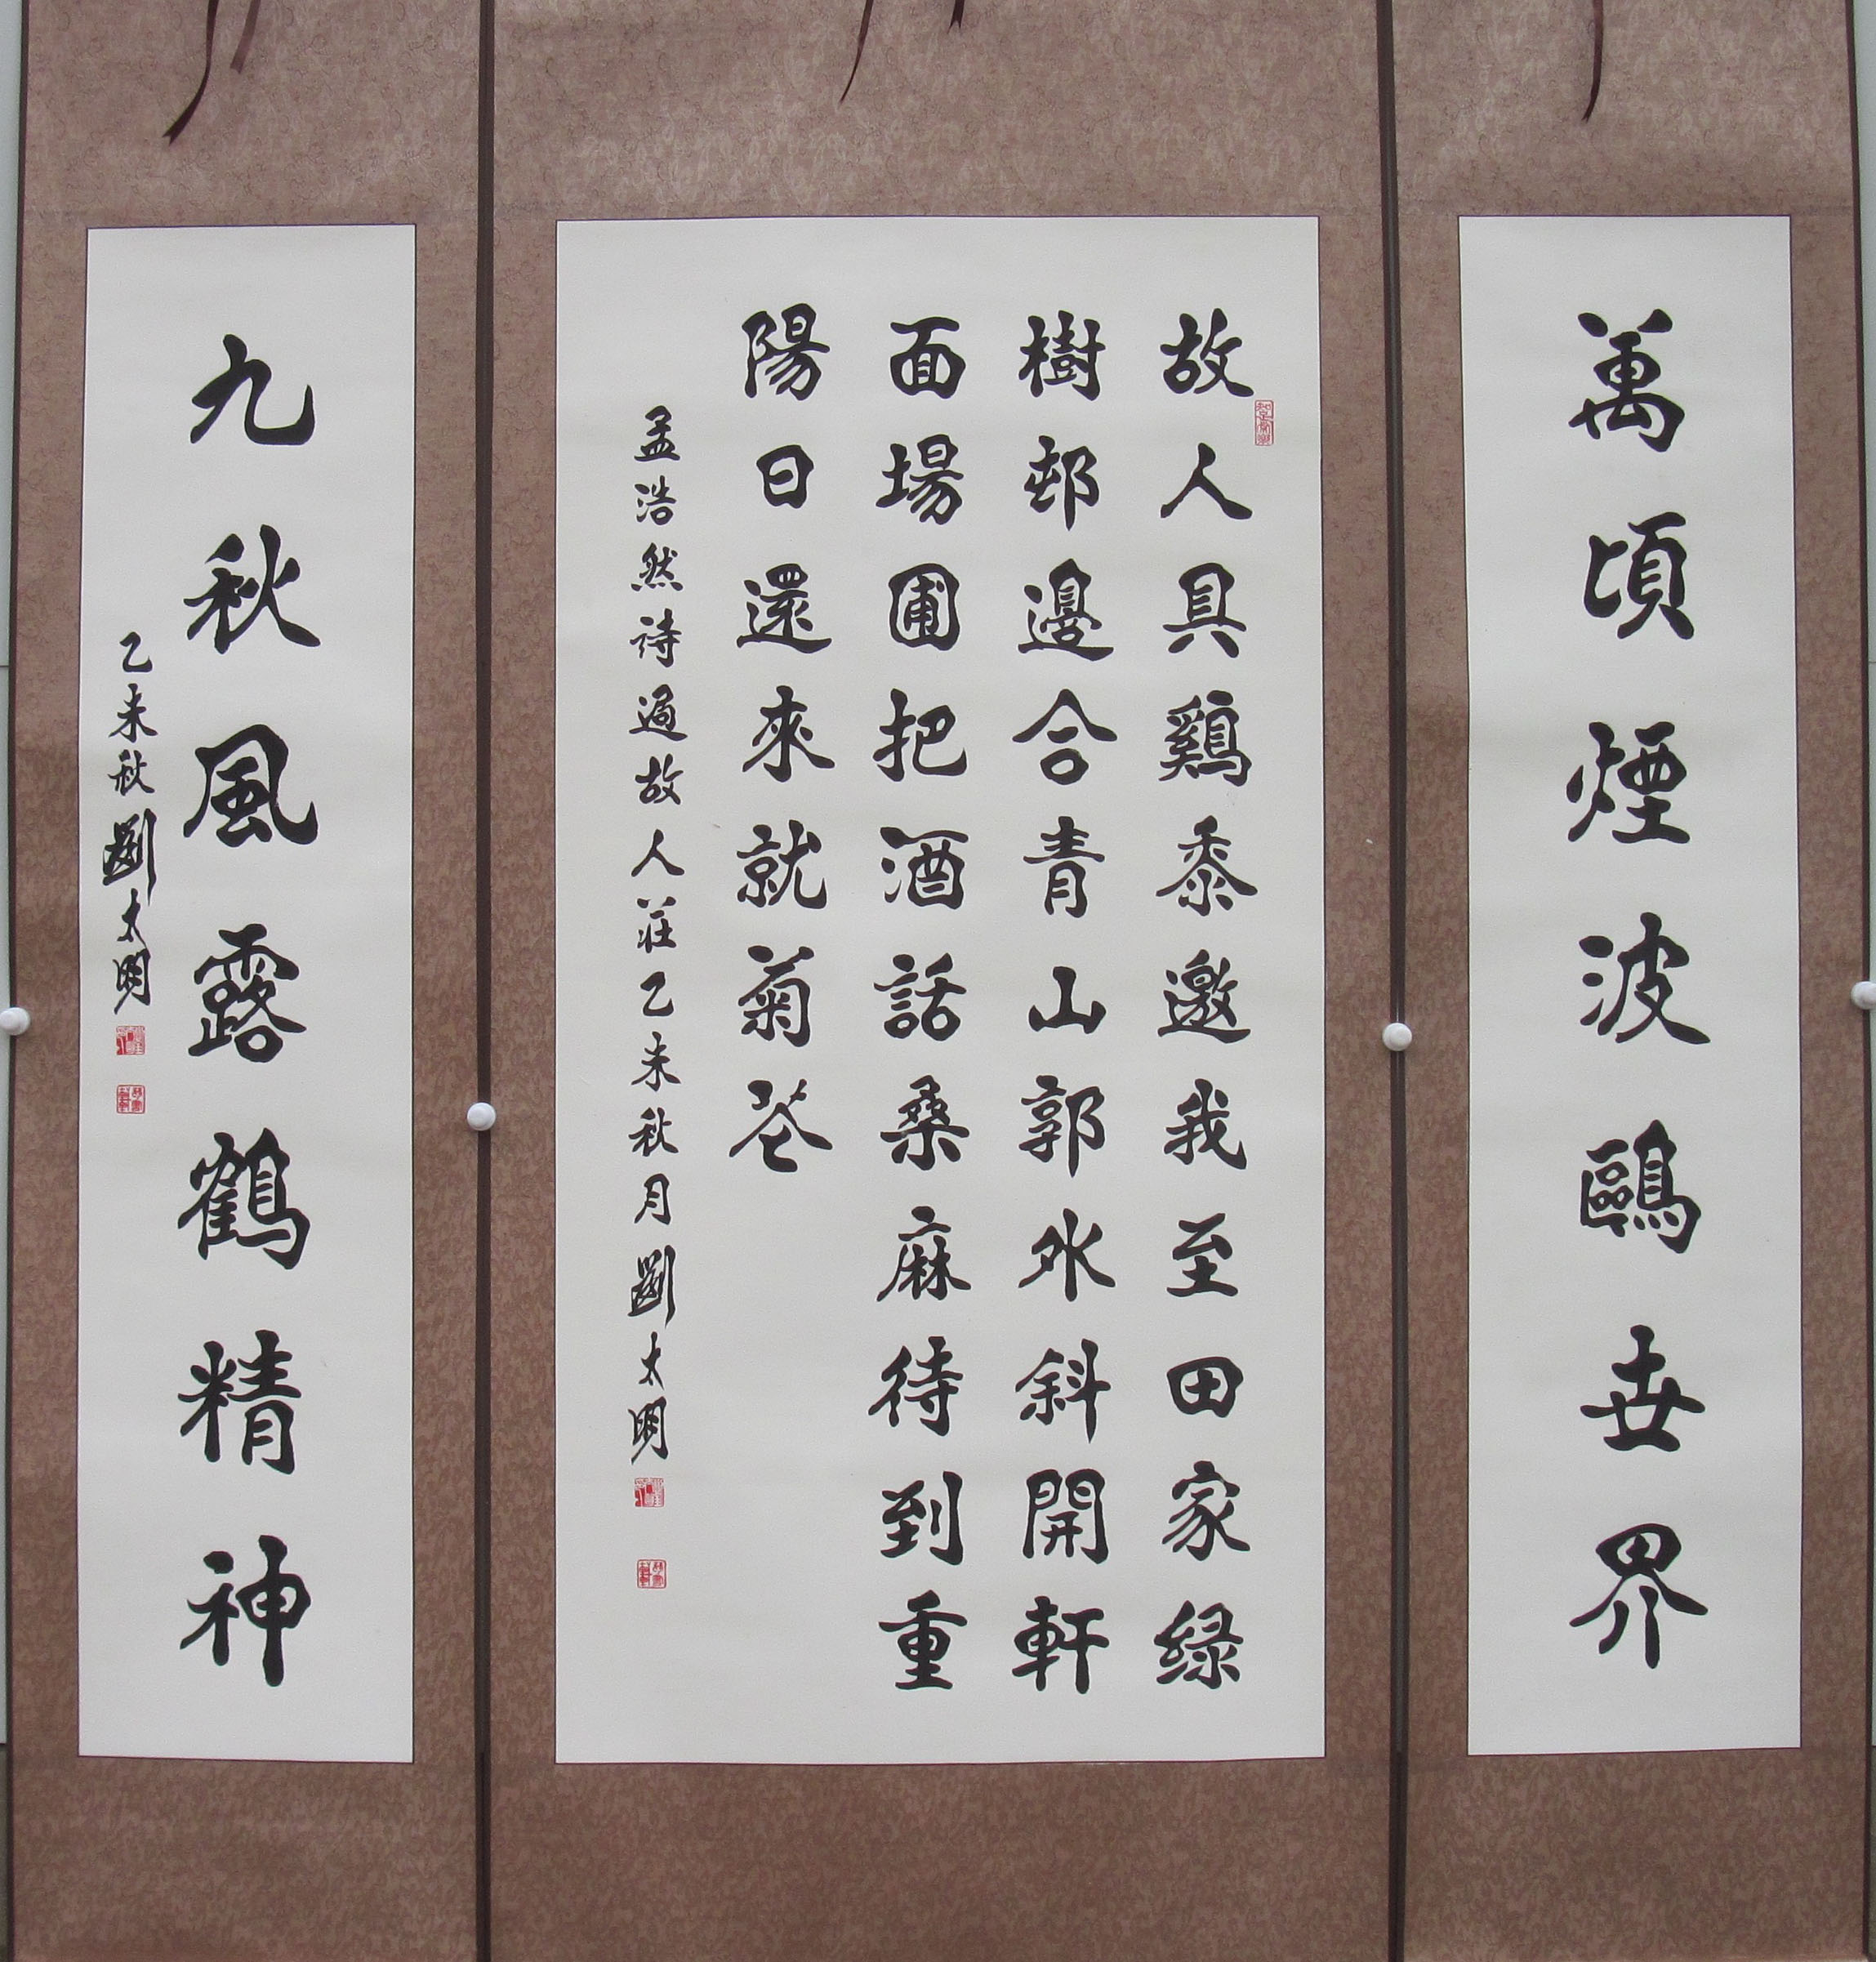 萬頃煙波鷗世界
故人具鷄黍邀我至田家綠
樹邨邊合青山郭外斜開軒
面場圃把酒話桑麻待到重
陽日還來就菊花
孟浩然诗過故人莊乙未秋月劉太明
九秋風露鶴精神
乙未秋劉太明